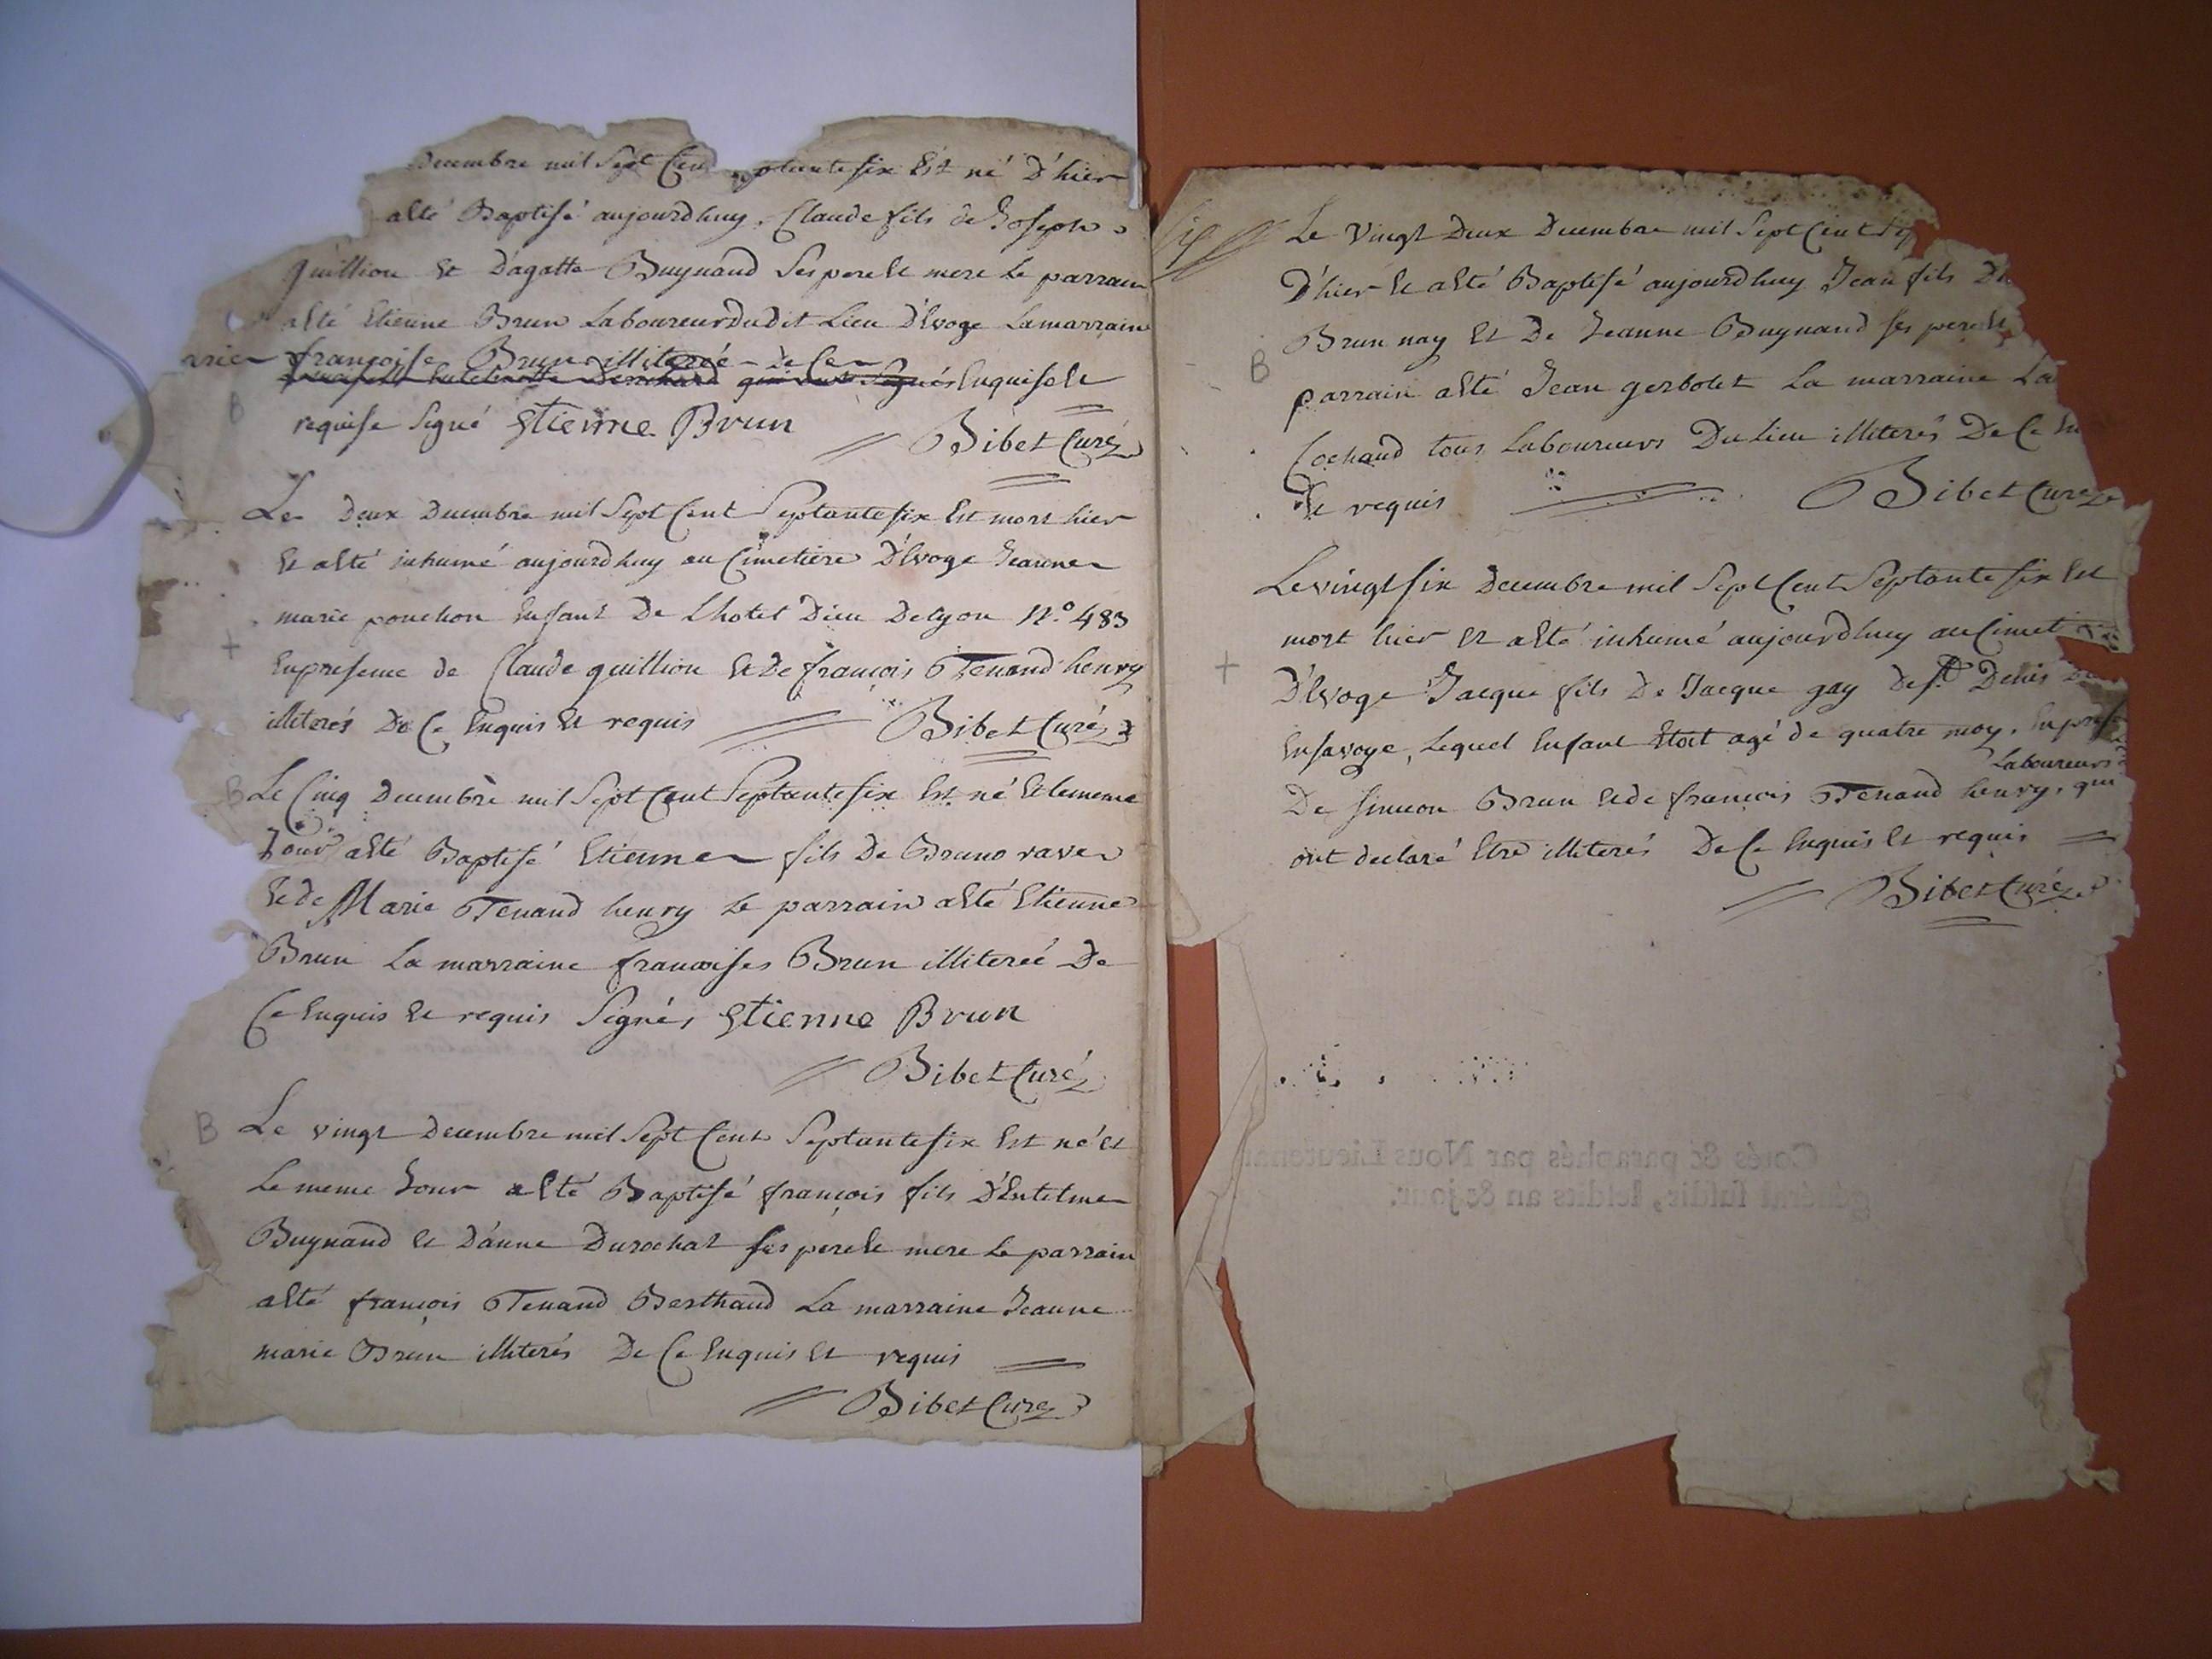 Decembre mil Sept Cent ptante six Est né D'hier
a Eté Baptisé aujourdhuy, Claude fils de Joseph
quillion et D'agatte Buynand Ses pere Et mere Le parrain
a Eté Etienne Brun Laboureur dudit Lieu D'Evoge La marraine
françoise Brun illiterée De Ce
Enquise Et
requise Signé Etienne Brun Bibet Curé
Le Deux Decembre mil Sept Cent Septante six Est mort hier
Et a Eté inhumé aujourdhuy au Cimetiere D'Evoge Jeanne
marie ponchon Enfant De Lhotel Dieu De Lyon N.o 483
En presence de Claude quillion Et De françois Tenand henry
illiterés De Ce Enquis Et requis Bibet Curé
B Le Cinq Decembre mil Sept Cent Septante six Est né Et le meme
Jour a Eté Baptisé Etienne fils De Bruno ravet
Et de Marie Tenand henry Le parrain a Eté Etienne
Brun La marraine francoises Brun illiterée De
Ce Enquis Et requis Signés Etienne Brun
Bibet Curé
B Le vingt Decembre mil Sept Cent Septante six Est né et
Le meme Jour a Eté Baptisé françois fils D'Entelme
Buynand Et D'anne Durochat ses pere Et mere Le parrain
a Eté françois Tenand Berthaud La marraine Jeanne
marie Brun illiterés De Ce Enquis Et requis
Bibet Curé
Le Vingt Deux Decembre mil Sept Cent
D'hier Et a Eté Baptisé aujourdhuy Jean fils
Brun nay Et De Jeanne Buynand ses pere Et
B
parrain a Eté Jean gerbolet La marraine
Cochaud tous Laboureurs Du Lieu illiterés De Ce
Et requis Bibet Curé
Le vingt six Decembre mil Sept Cent Septante six Est
mort hier Et a Eté inhumé aujourdhuy au Cimet
D'Evoge Jacque fils De Jacque gay De st Denis
En savoye, Lequel Enfant Etoit agé de quatre moy, En pres
Laboureurs
De simeon Brun Et de francois Tenand henry, qui
ont declaré Etre illiterés De Ce Enquis Et requis
Bibet Curé
Cotés & paraphés par Nous Lieutenant
général susdit, lesdits an & jour.